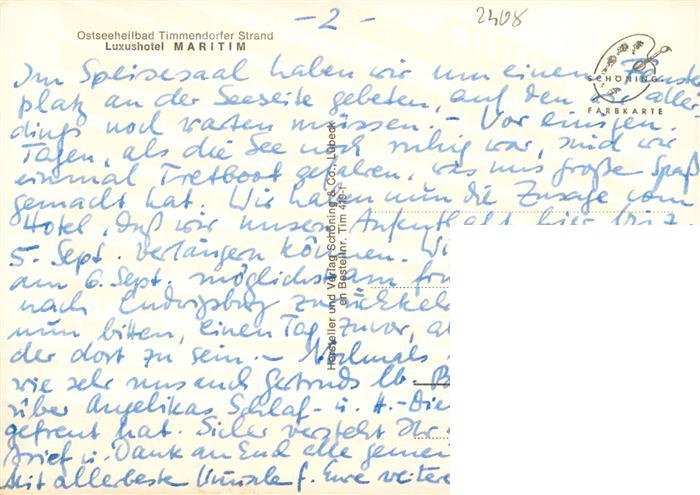 - 2 -
2408
Ostseeheilbad Timmendorfer Strand
Luxushotel MARITIM
SCHÖNING
FARBKARTE
Im Speisesaal haben wir um einen
platz an der Seeseite gebeten, auf den wir aller-
dings noch warten müssen. - Vor einigen
Tagen, als die See noch ruhig war, sind wir
einmal Tretboot gefahren, was uns große Spaß
gemacht hat. Wir haben nun die Zusage vom
Hotel, daß wir unseren Aufenthalt hier bis z.
5. Sept. verlängern können. Wi
am 6. Sept. möglichst
nach Ludwigsburg
nun bitten, einen Tag zuvor, a
der dort zu sein. - Nochmals
wie sehr uns auch Gertruds lb. B
über Angelikas Schlaf- u.
gefreut hat. Sicher versteht Ihr
Brief u. Dank an Euch alle gemein
Mit allerbesten Wünschen f. Eure weitere
Hersteller und Verlag Schöning & Co., Lübeck
en Bestellnr. Tim 419 f